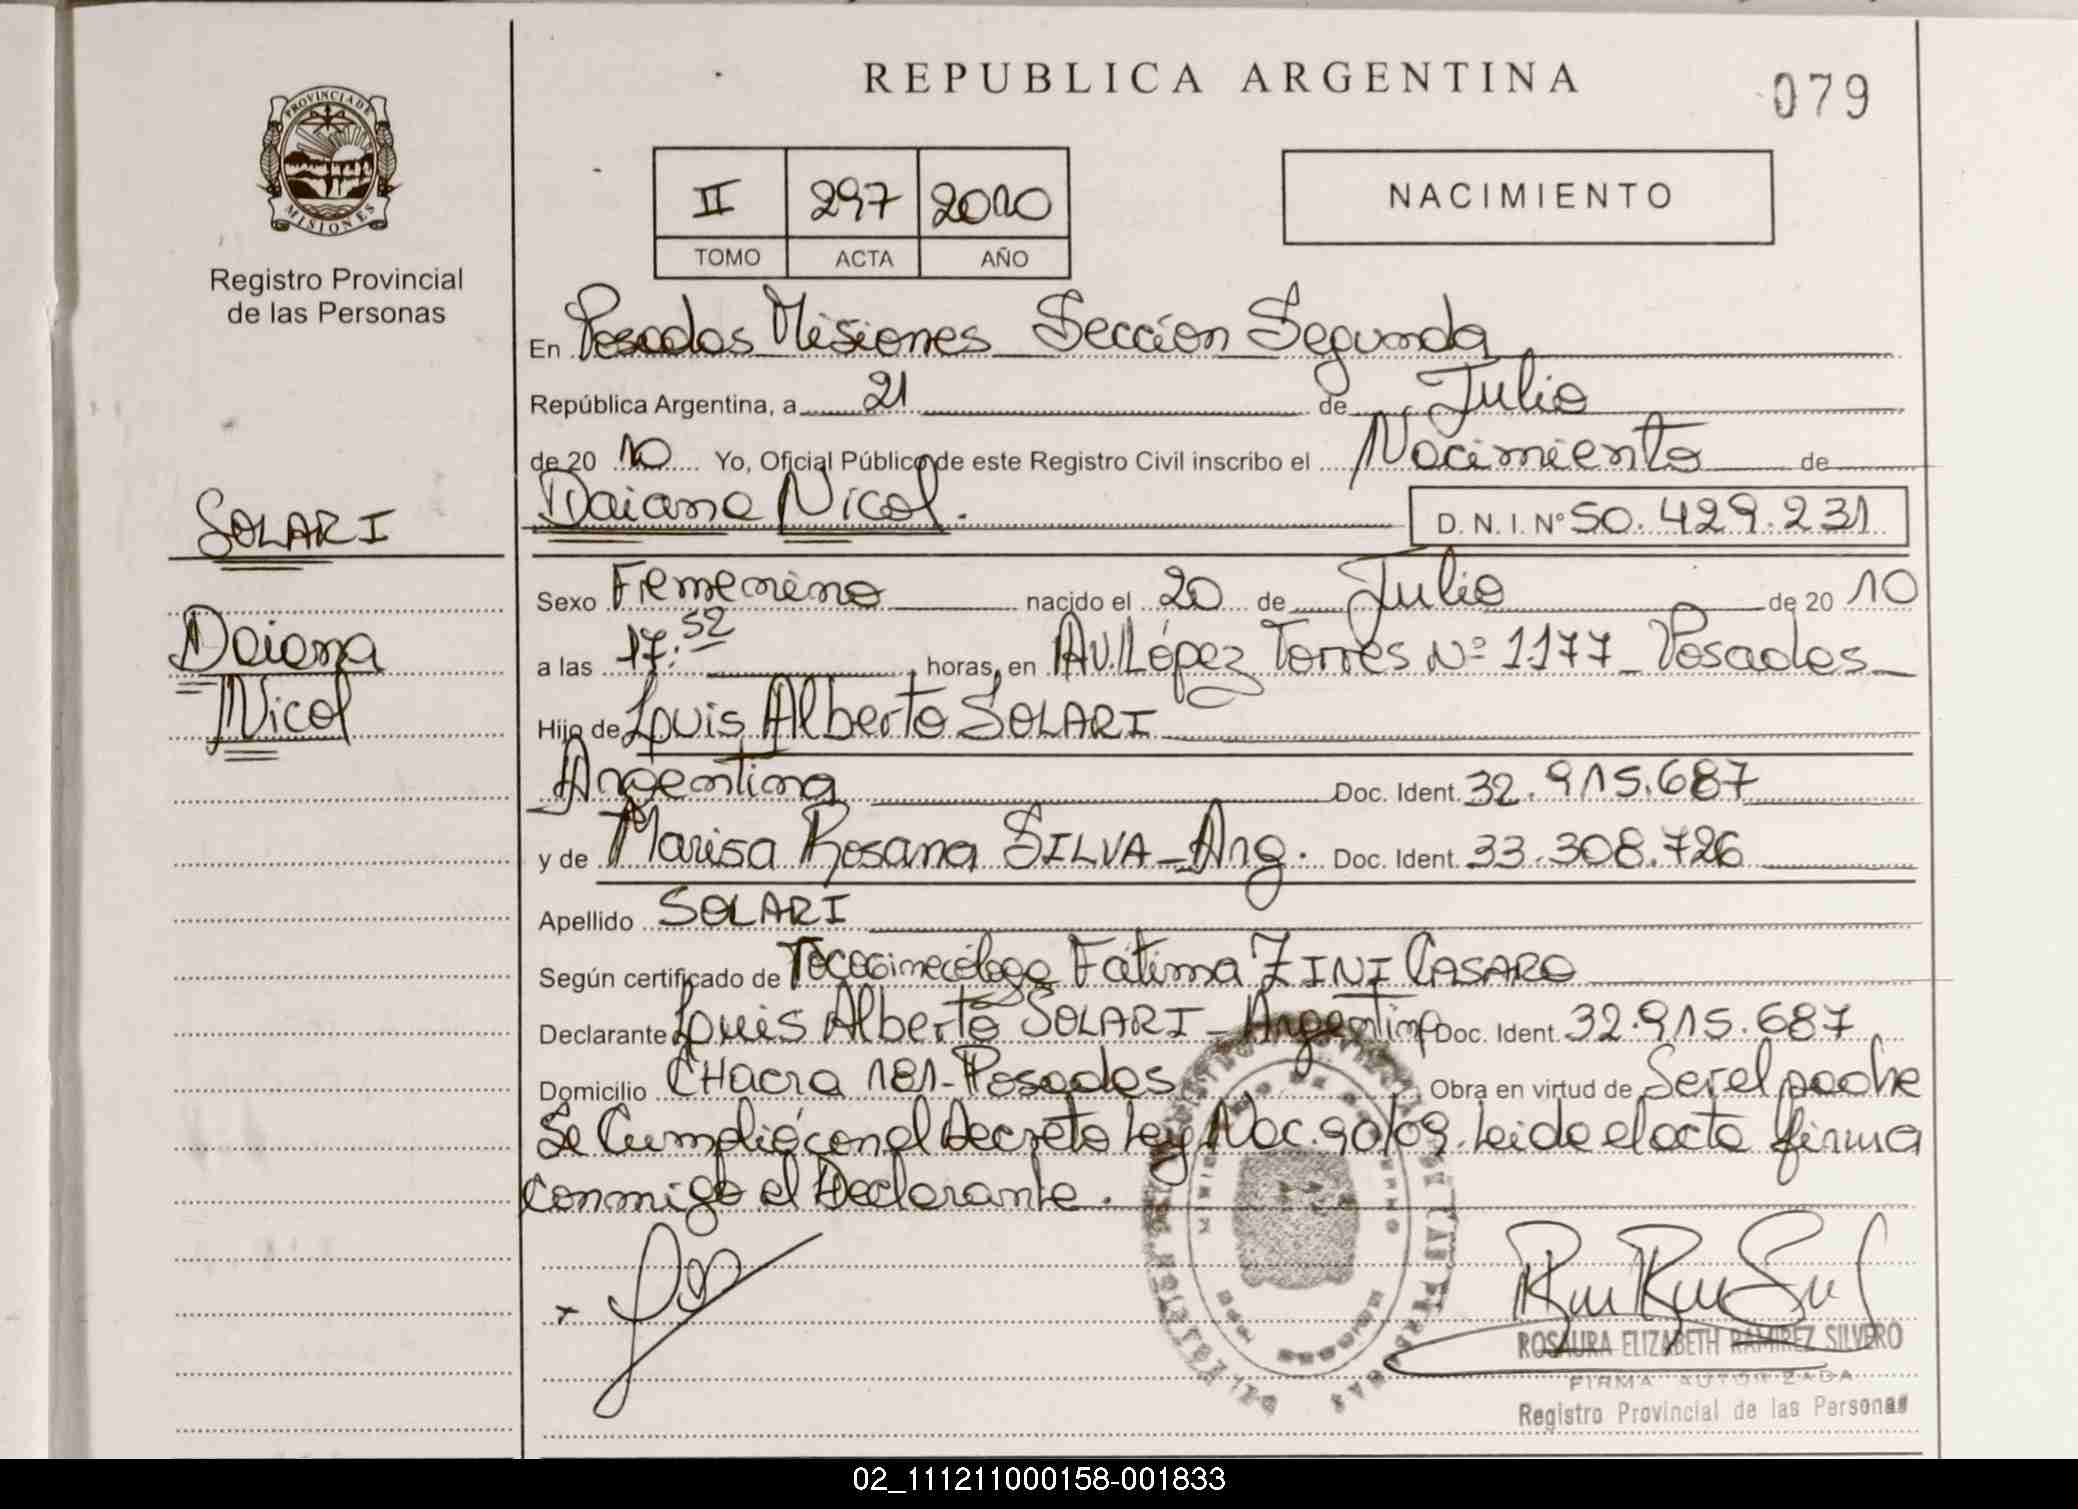 REPUBLICA ARGENTINA
079
PROVINCIA DE MISIONES
Registro Provincial
de las Personas
II 297 2010
TOMO ACTA AÑO
NACIMIENTO
En Posadas Misiones Sección Segunda
República Argentina, a 21 de Julio
de 20 10 Yo, Oficial Público de este Registro Civil inscribo el Nacimiento de
Daiana Nicol.
D. N. I. Nº 50.429.231
SOLARI
Daiana
Nicol
Sexo Femenino nacido el 20 de Julio de 20 10
a las 17:52 horas, en AV. López Torres Nº 1177 - Posadas -
Hijo de Luis Alberto SOLARI
Argentina Doc. Ident. 32.915.687
y de Marisa Rosana SILVA - Arg. Doc. Ident. 33.308.726
Apellido SOLARI
Según certificado de Tocoginecóloga Fátima ZINI CASARO
Declarante Luis Alberto SOLARI - Argentino Doc. Ident. 32.915.687
Domicilio CHacra 181 - Posadas Obra en virtud de Ser el padre
Se Cumplió con el Decreto Ley Nac. 90/09. Leida el acta firma
conmigo el Declarante.
ROSAURA ELIZABETH RAMIREZ SILVERO
FIRMA AUTORIZADA
Registro Provincial de las Personas
02_111211000158-001833